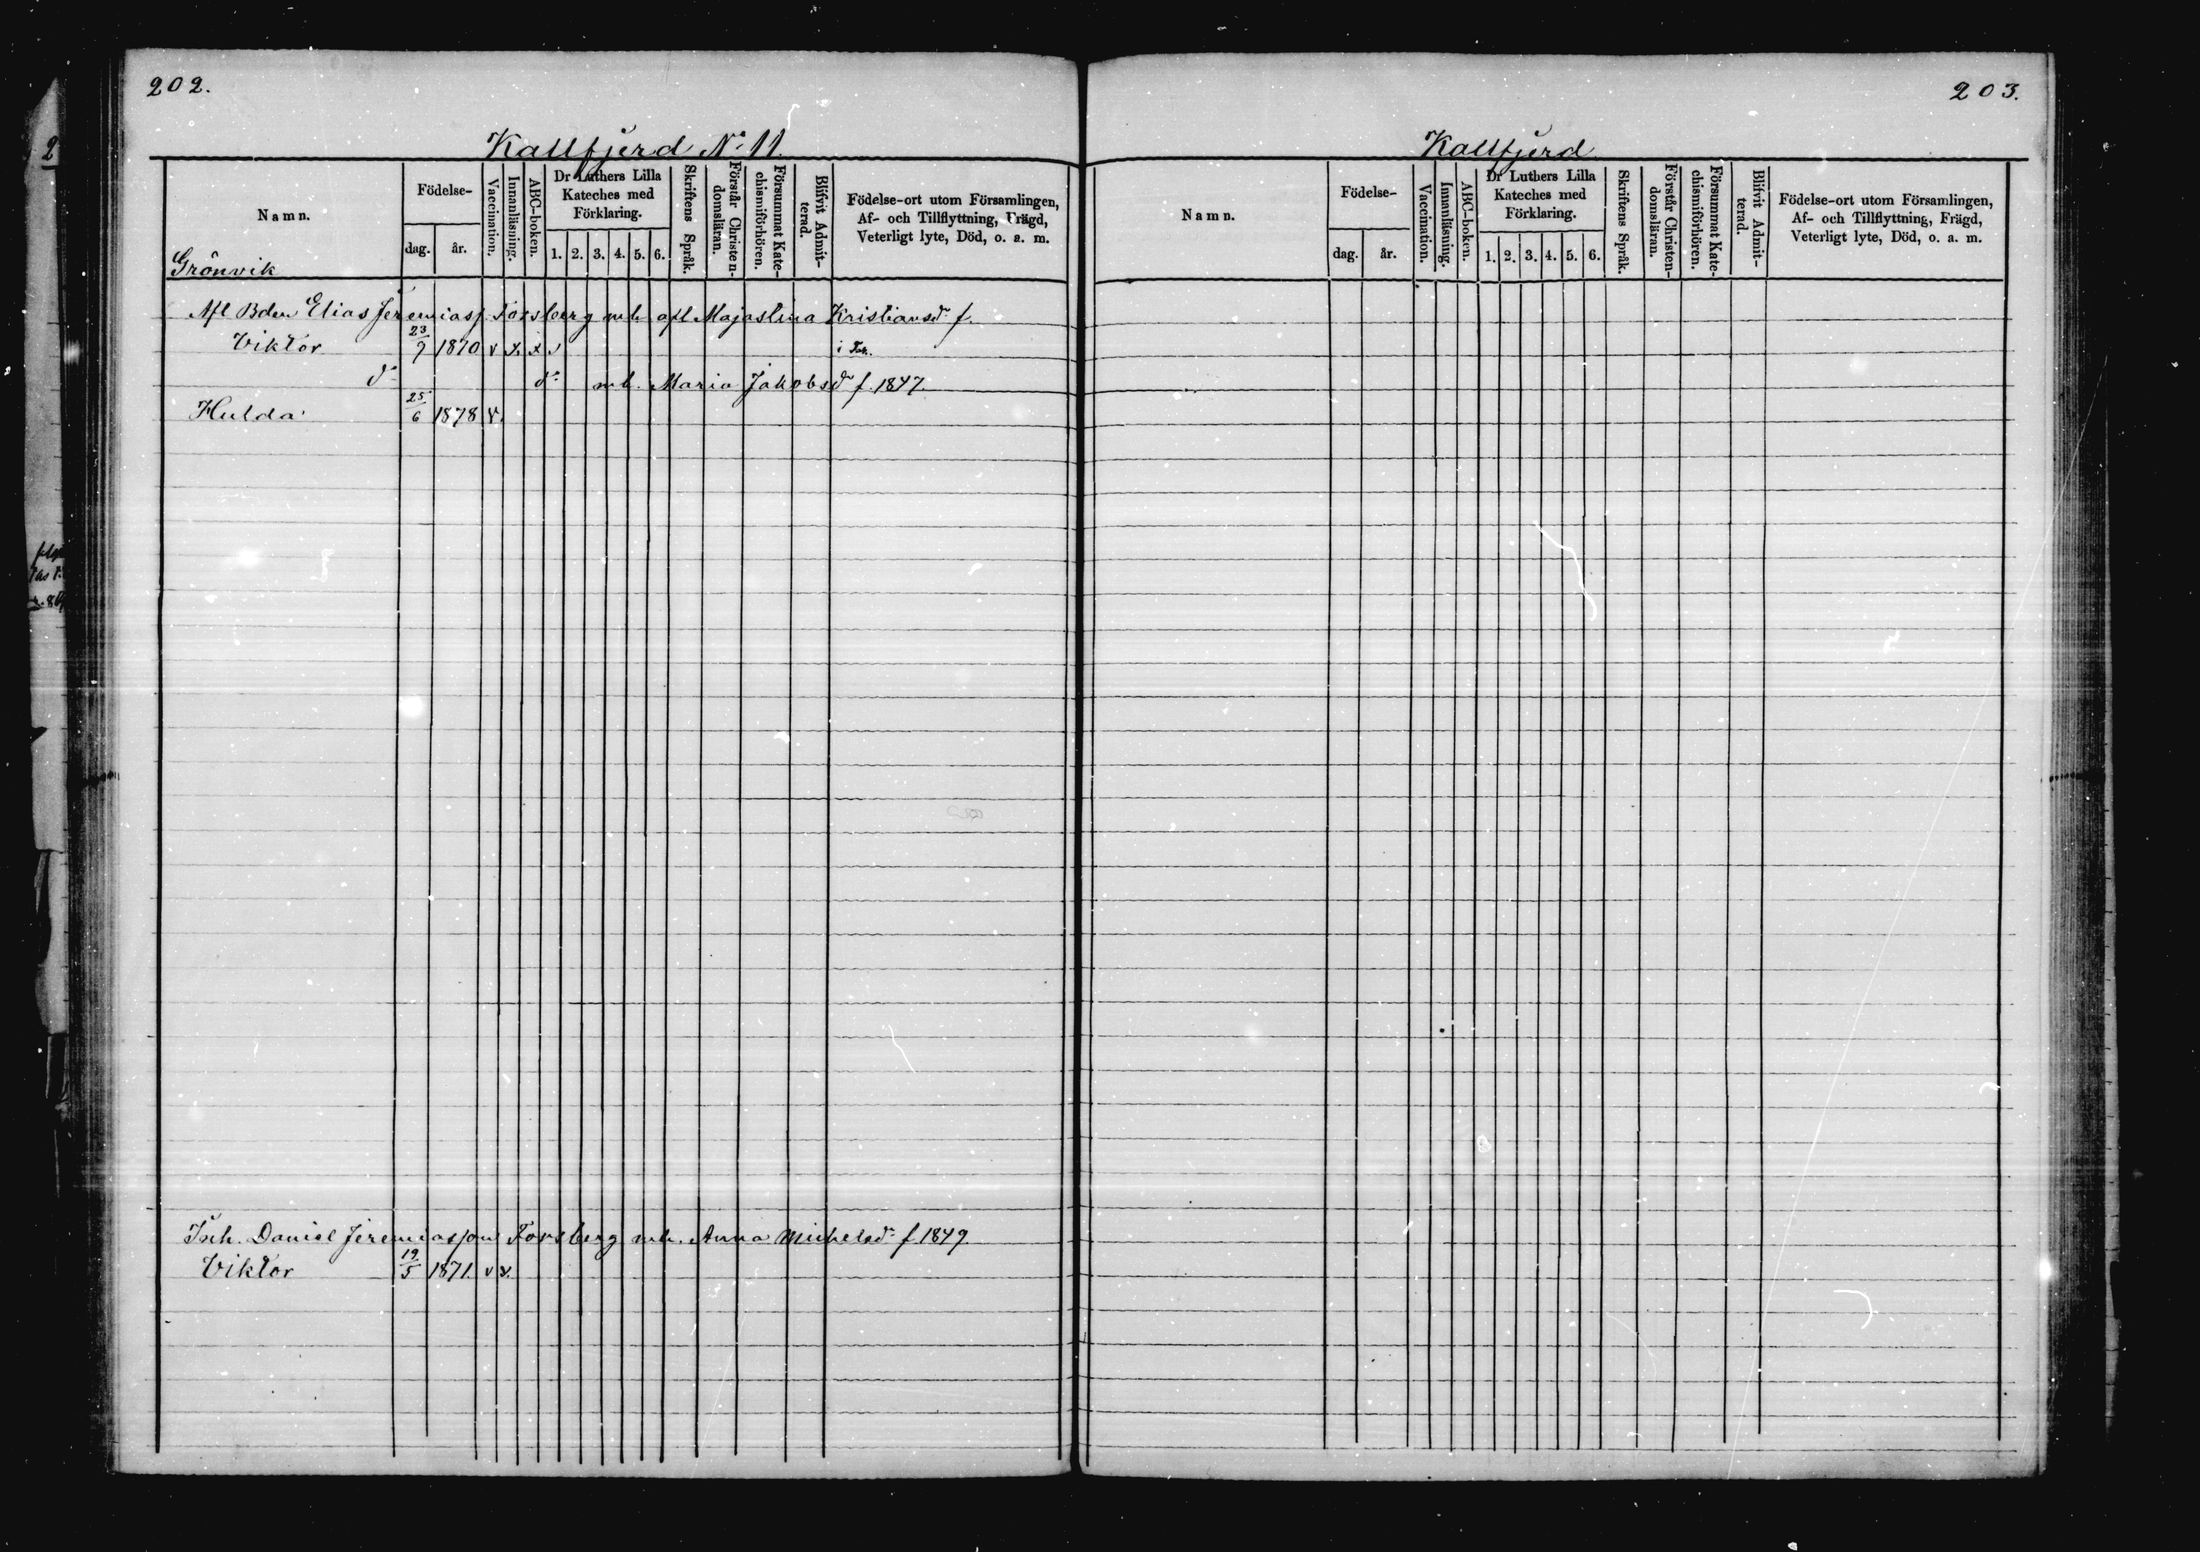 202.
Kallfjerd No 11.
Namn.
Födelse-
dag. år.
Vaccination.
Innanläsning.
ABC-boken.
Dr Luthers Lilla
Kateches med
Förklaring.
1. 2. 3. 4. 5. 6.
Skriftens Språk.
Förstår Christen-
domsläran.
Försummat Kate-
chismiförhören.
Blifvit Admit-
terad.
Födelse-ort utom Församlingen,
Af- och Tillflyttning, Frägd,
Veterligt lyte, Död, o. a. m.
Grönvik
Afl Bden Elias Jeremiass. Forsberg mh afl Majastina Kristiansdr f.
Viktor 23/7 1870 v x x v i
do do mh. Maria Jakobsdr f. 1847.
Hulda 25/6 1878 v.
Inh. Daniel Jeremiasson Forsberg mh. Anna Michelsdr f. 1849
Viktor 19/5 1871. v v.
203.
Kallfjerd
Namn.
Födelse-
dag. år.
Vaccination.
Innanläsning.
ABC-boken.
Dr Luthers Lilla
Kateches med
Förklaring.
1. 2. 3. 4. 5. 6.
Skriftens Språk.
Förstår Christen-
domsläran.
Försummat Kate-
chismiförhören.
Blifvit Admit-
terad.
Födelse-ort utom Församlingen,
Af- och Tillflyttning, Frägd,
Veterligt lyte, Död, o. a. m.